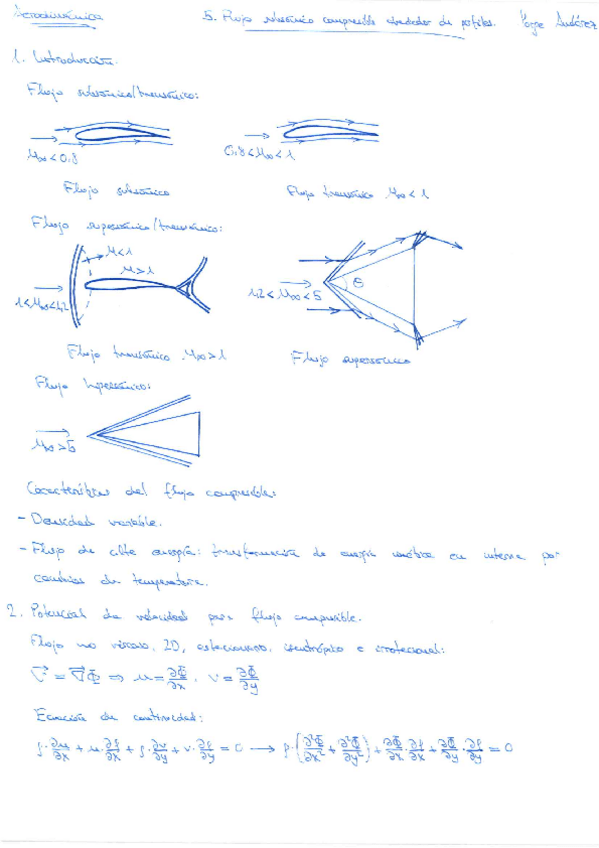 Aerodinámica
5. Flujo subsónico compresible alrededor de perfiles. Jorge
1. Introducción.
Flujo subsónico/transónico:
M∞ < 0.8
0.8 < M∞ < 1
Flujo subsónico
Flujo transónico M∞ < 1
Flujo supersónico/transónico:
M < 1
M > 1
1 ≤ M∞ < 1,2
1,2 < M∞ < 5
θ
Flujo transónico M∞ > 1
Flujo supersónico
Flujo hipersónico:
M∞ > 5
Características del flujo compresible:
- Densidad variable.
- Flujo de alta energía: transformación de energía cinética en interna por
cambios de temperatura.
2. Potencial de velocidad para flujo compresible.
Flujo no viscoso, 2D, estacionario, isentrópico e irrotacional:
V⃗ = ∇⃗Φ ⇒ u = ∂Φ/∂x, v = ∂Φ/∂y
Ecuación de continuidad:
ρ·∂u/∂x + u·∂ρ/∂x + ρ·∂v/∂y + v·∂ρ/∂y = 0 → ρ·(∂²Φ/∂x² + ∂²Φ/∂y²) + ∂Φ/∂x·∂ρ/∂x + ∂Φ/∂y·∂ρ/∂y = 0